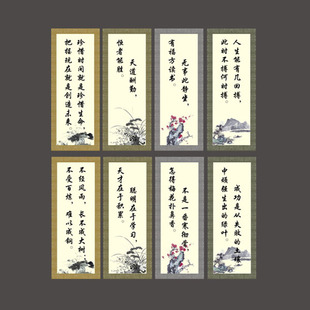 珍惜时间就是珍惜生命
把握现在就是创造未来
天道酬勤,
恒者能胜。
无事此静坐,
有福方读书。
人生能有几回搏,
此时不搏何时搏。
不经风雨,长不成大树
不受百炼,难以成钢。
聪明在于学习,
天才在于积累。
不是一番寒彻骨
怎得梅花扑鼻香。
成功是从失败的土壤
中顽强生出的绿叶。